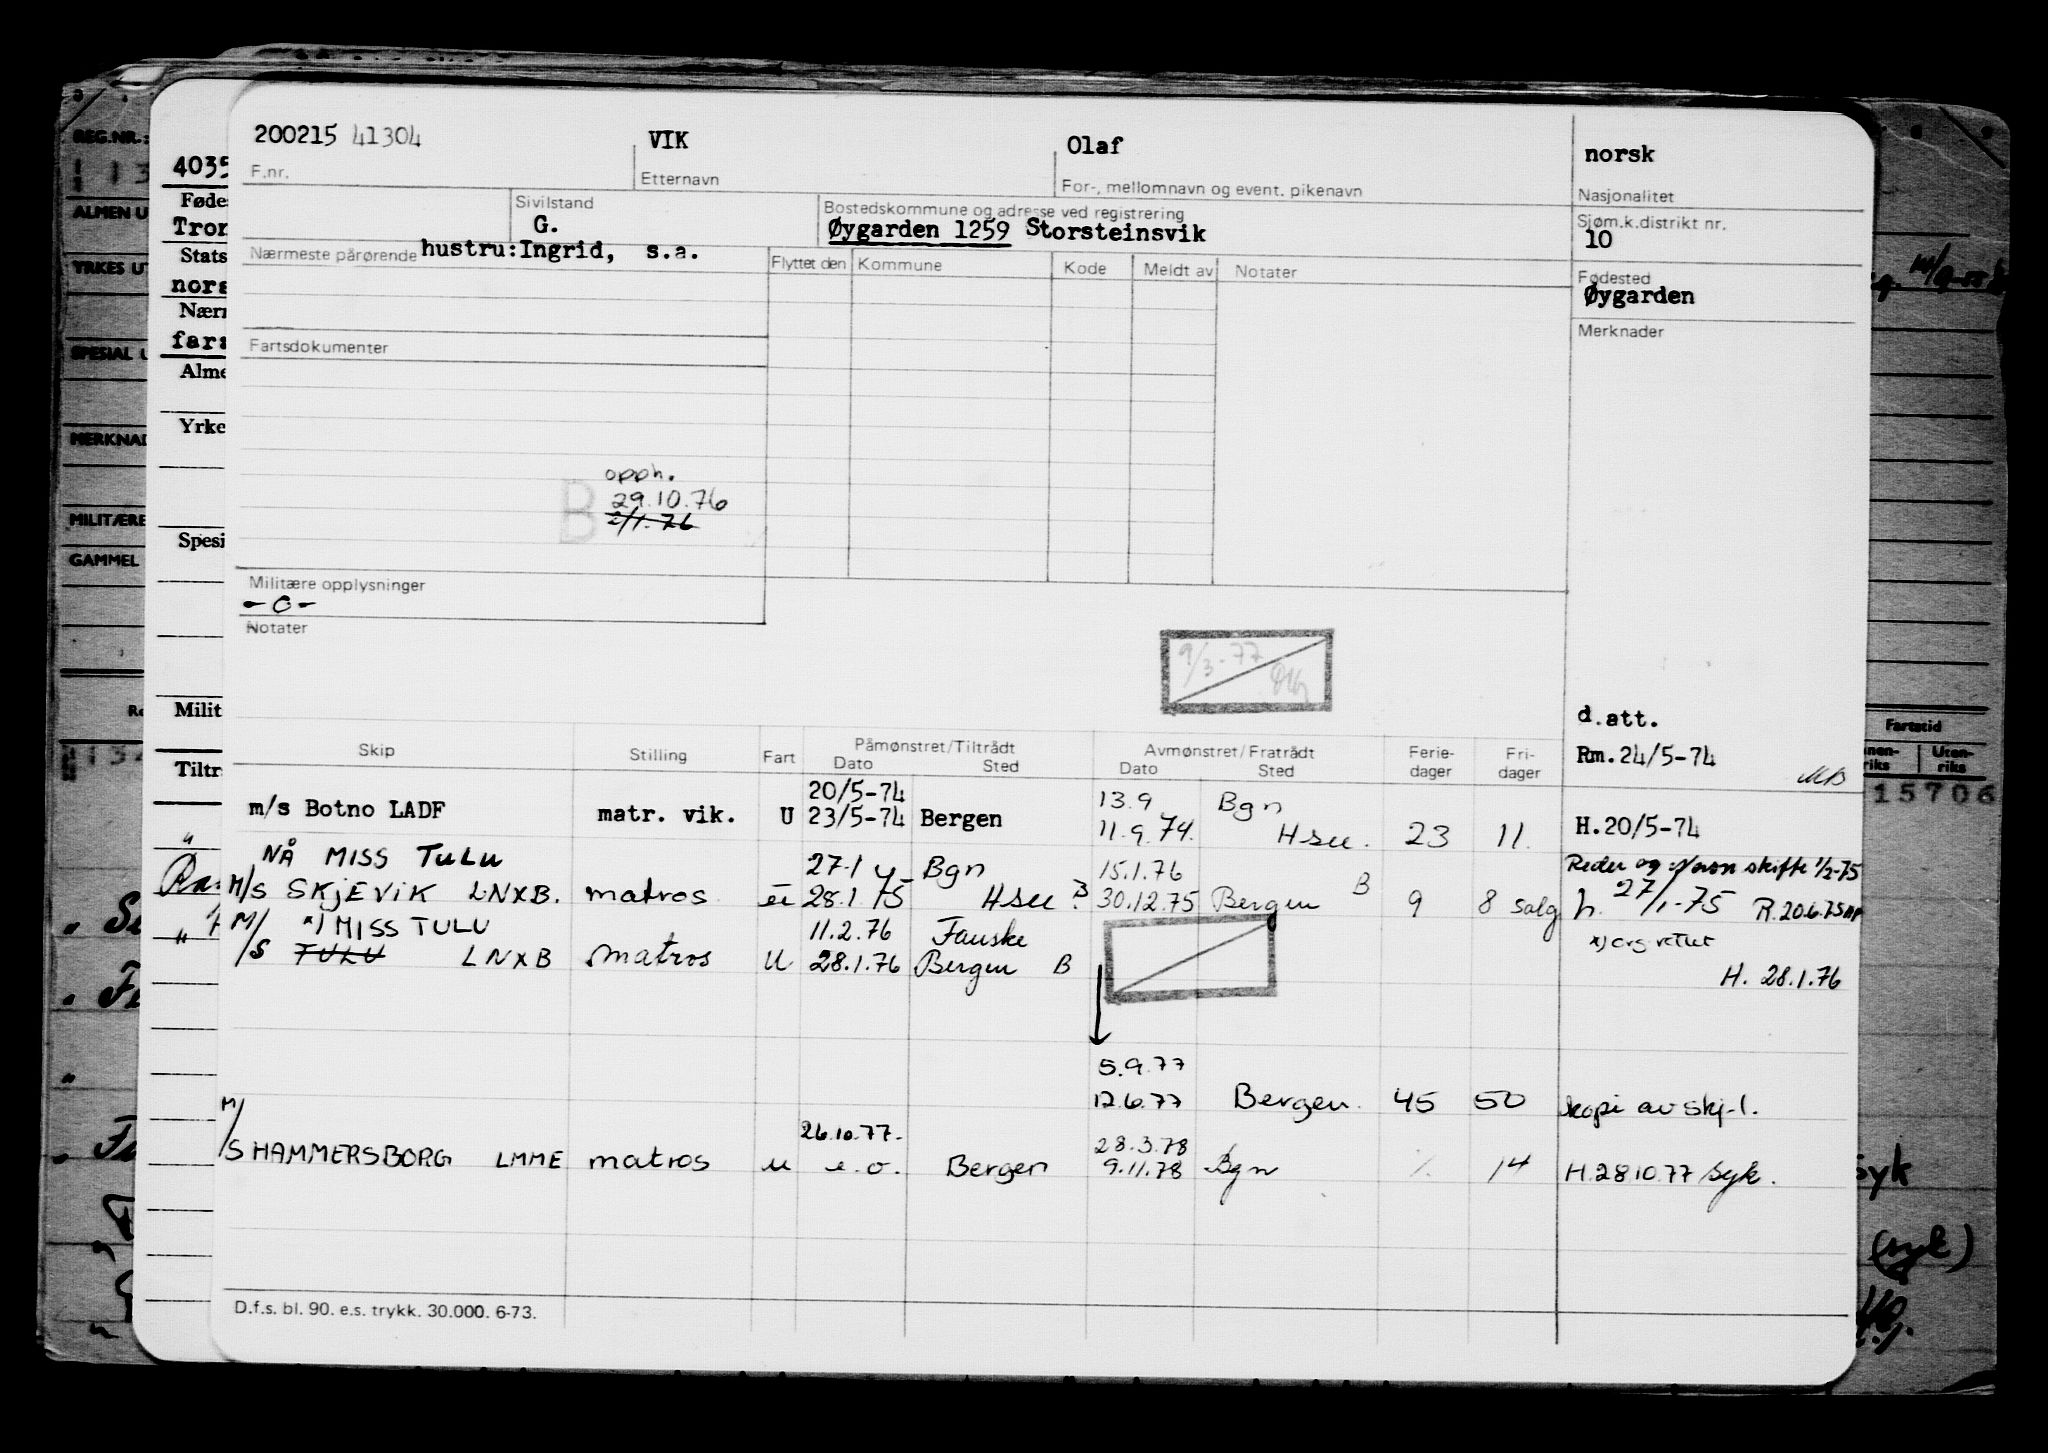 200215 41304 VIK Olaf norsk
F.nr. Etternavn For-, mellomnavn og event. pikenavn Nasjonalitet
Sivilstand Bostedskommune og adresse ved registrering Sjøm.k.distrikt nr.
G. Øygarden 1259 Storsteinsvik 10
Nærmeste pårørende hustru:Ingrid, s.a.
Flyttet den Kommune Kode Meldt av Notater Fødested
Øygarden
Fartsdokumenter Merknader
opph.
B 29.10.76
2/1.76
Militære opplysninger
- 0 -
Notater
9/3-77
d.att.
Skip Stilling Fart Påmønstret/Tiltrådt Avmønstret/Fratrådt Ferie- Fri- Rm.24/5-74
Dato Sted Dato Sted dager dager
20/5-74 13.9 Bgn
m/s Botno LADF matr. vik. U 23/5-74 Bergen 11.9.74. Hsee. 23 11. H.20/5-74
NÅ MISS TULU 27.1 Bgn 15.1.76 Reder og skifte 1/2-75
M/S SKJEVIK LNXB. matros u 28.1.75 Hsee B 30.12.75 Bergen B 9 8 salg h. 27/1-75 R.20.6.75
M/ *) MISS TULU 11.2.76 Fauske *) org rettet
S TULU LNXB matros u 28.1.76 Bergen B H. 28.1.76
5.9.77
12.6.77 Bergen. 45 50 kopi av skj-l.
M/ 26.10.77.- 28.3.78
S HAMMERSBORG LMME matros u e.o. Bergen 9.11.78 Bgn 14 H.28.10.77 /syk.
D.f.s. bl. 90. e.s. trykk. 30.000. 6-73.
REG.NR.:
4035
Føde
ALMEN U
Tron
Stats
YRKES UT
nors
Nærm
fars
SPESIAL U
Alme
Yrke
MERKNAD
MILITÆRE
Spesi
GAMMEL
Milit
Tiltr
Fartstid
Innen-riks Uten-riks
15706
syk
(syk)